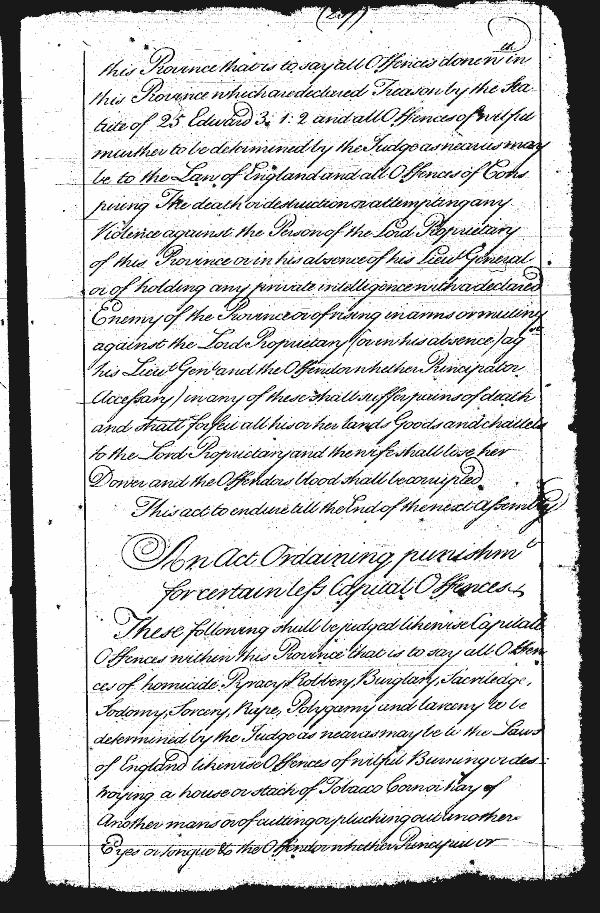 this Province that is to say all Offences done wth in
this Province which are declared Treason by the Sta-
tute of 25 Edward 3. 1. 2 and all Offences of wilful
murther to be determined by the Judge as near as may
be to the Law of England and all Offences of Cons
piring The death or destruction or attempting any
Violence against the Person of the Lord Proprietary
of this Province or in his absence of his Lieut General
or of holding any private intelligence with a declared
Enemy of the Province or of rising in arms or mutiny
against the Lord Proprietary (or in his absence) agst
his Lieut Genl and the Offendor whether Principal or
Accessary) in any of these shall suffer pains of death
and shall forfeit all his or her lands Goods and chattels
to the Lord Proprietary and the wife shall lose her
Dower and the Offendors blood shall be corrupted
This act to endure till the End of the next Assembly
An Act Ordaining punishmt
for certain less Capital Offences
These following shall be judged likewise Capitall
Offences within this Province that is to say all Offen
ces of homicide Pyracy, Robbery, Burglary, Sacriledge,
Sodomy, Sorcery, Rape, Polygamy and larceny to be
determined by the Judge as near as may be to the Laws
of England likewise Offences of wilful Burning or des-
troying a house or stack of Tobacco Corn or hay of
Another mans or of cutting or plucking out anothers
Eyes or tongue & the Offendor whether Principal or